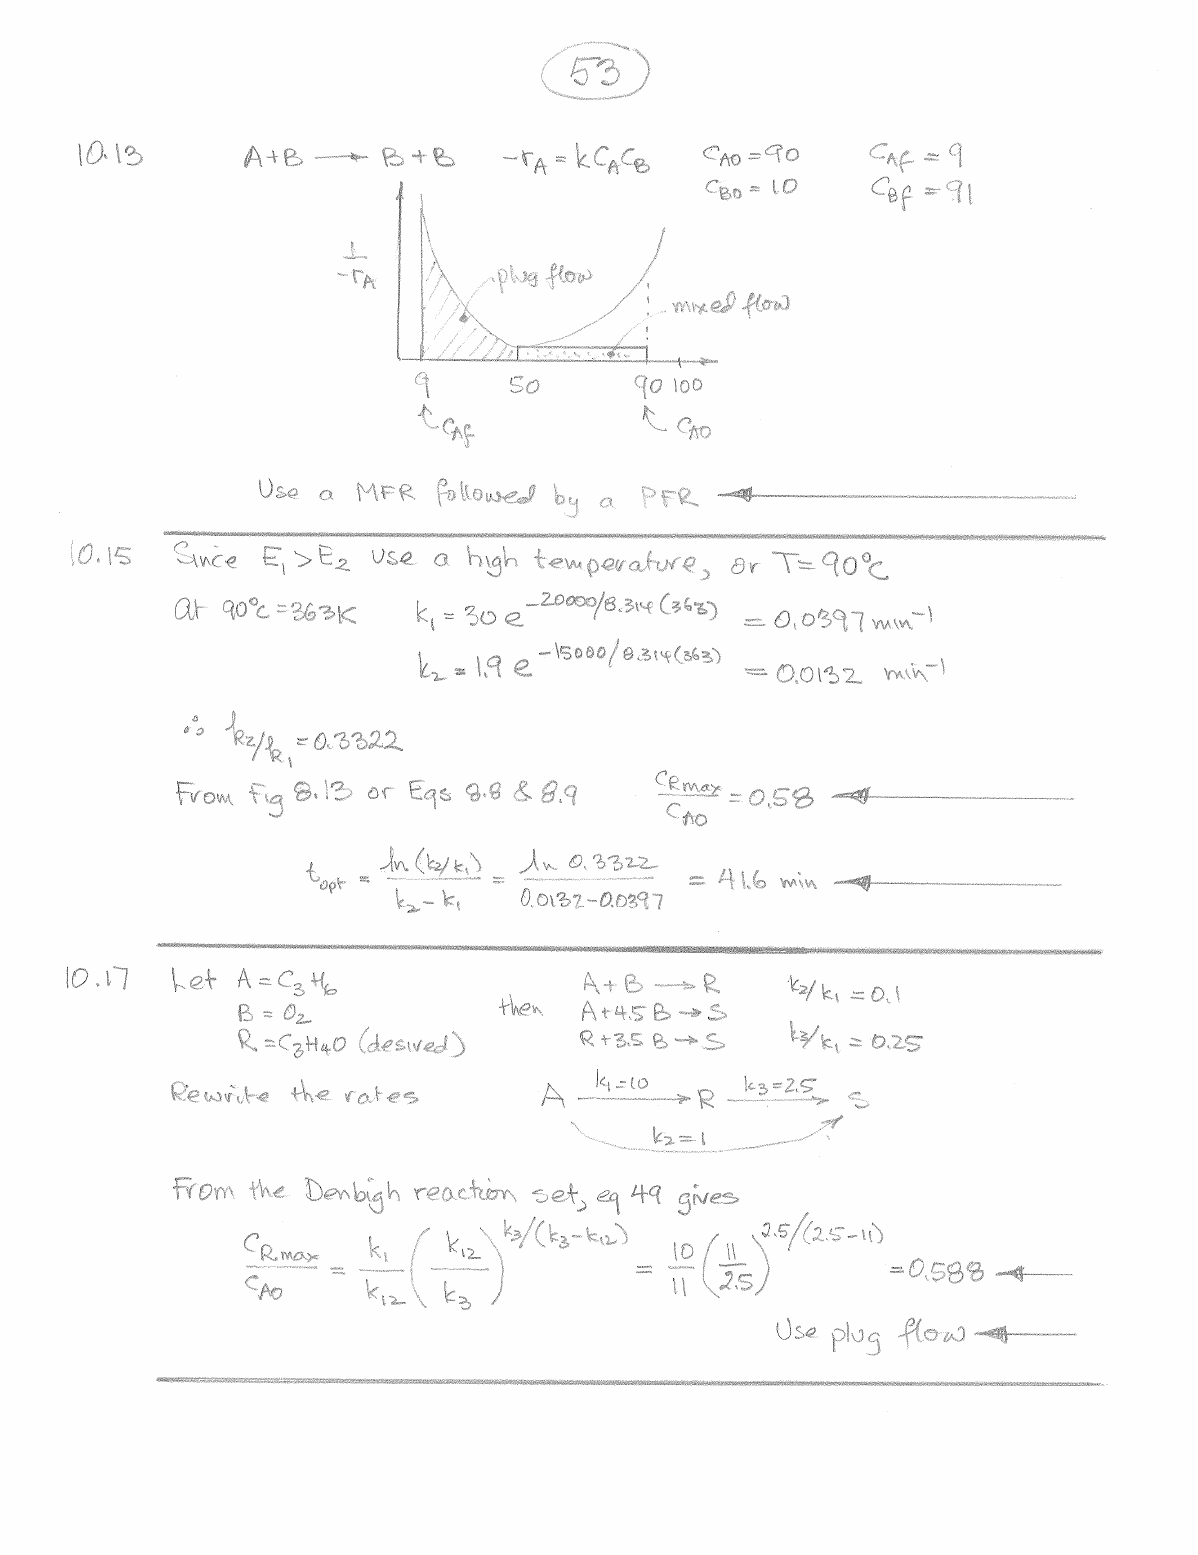 53
10.13 A+B → B+B -rA = kCACB CA0 = 90 CAf = 9
CB0 = 10 CBf = 91
1/-rA
plug flow
mixed flow
9 50 90 100
CAf CA0
Use a MFR followed by a PFR
10.15 Since E1 > E2 use a high temperature, or T = 90°C
At 90°C = 363K k1 = 30 e^-20000/8.314(363) = 0.0397 min^-1
k2 = 1.9 e^-15000/8.314(363) = 0.0132 min^-1
∴ k2/k1 = 0.3322
From Fig 8.13 or Eqs 8.8 & 8.9 CRmax/CA0 = 0.58
topt = ln(k2/k1)/k2-k1 = ln 0.3322/0.0132-0.0397 = 41.6 min
10.17 Let A = C3H6 A+B → R k2/k1 = 0.1
B = O2 then A+4.5B → S
R = C3H4O (desired) R+3.5B → S k3/k1 = 0.25
Rewrite the rates A k1=10 → R k3=2.5 → S
k2=1
From the Denbigh reaction set, eq 49 gives
CRmax/CA0 = k1/k12 (k12/k3)^k3/(k3-k12) = 10/11 (11/2.5)^2.5/(2.5-11) = 0.588
Use plug flow